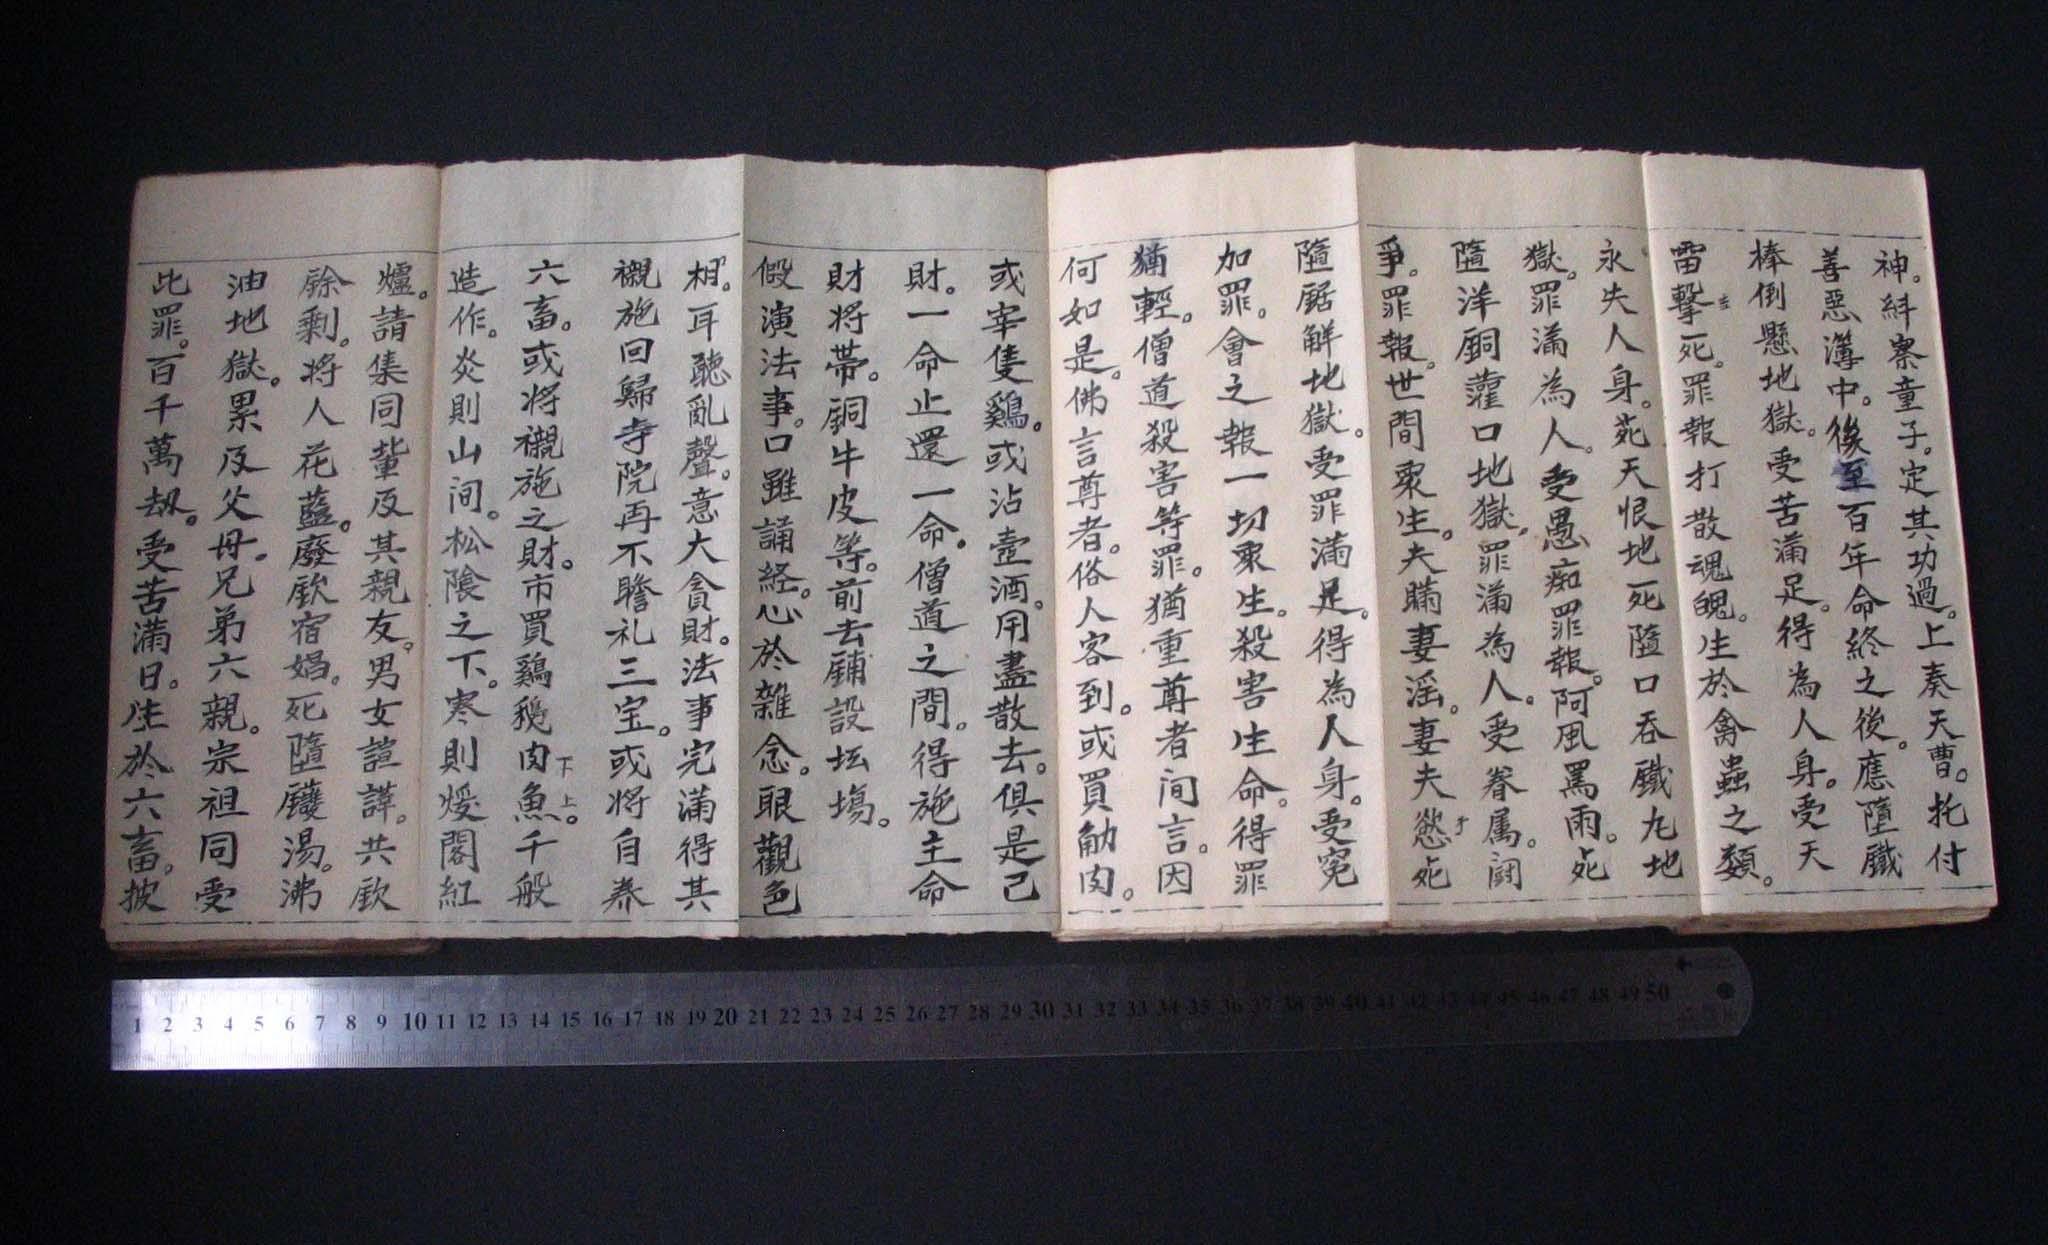 神。糾察童子。定其功過。上奏天曹。托付
善惡簿中。後至百年命終之後。應墮鐵
棒倒懸地獄。受苦滿足。得為人身。受天
雷擊死。罪報打散魂魄。生於禽蟲之類。
永失人身。死天恨地死墮口吞鐵丸地
獄。罪滿為人。受愚痴罪報。阿風罵雨。死
隨洋銅灌口地獄。罪滿為人。受眷属。鬪
爭。罪報。世間衆生。夫瞞妻淫。妻夫慾死
隨鋸解地獄。受罪滿足。得為人身。受冤
加罪。會之報一切衆生。殺害生命。得罪
猶輕。僧道殺害等罪。猶重尊者间言。因
何如是。佛言尊者。俗人客到。或買觔肉。
或宰隻鷄。或沽壺酒。用盡散去。俱是己
財。一命止還一命。僧道之間。得施主命
財将帶。銅牛皮等。前去鋪設坛塲。
假演法事。口雖誦経。心於雜念。眼觀色
相。耳聽亂聲。意大貪財。法事完滿得其
襯施回歸寺院再不瞻礼三宝。或将自养
六畜。或将襯施之財。市買鷄鵞肉魚。千般
下上
造作。炎則山间。松陰之下。寒則煖閣紅
爐。請集同輩及其親友。男女諠譁。共飲
餘剩。将人花藍。廢飲宿娼。死墮鑊湯。沸
油地獄。累及父母。兄弟六親。宗祖同受
此罪。百千萬劫。受苦滿日。生於六畜。披
1 2 3 4 5 6 7 8 9 10 11 12 13 14 15 16 17 18 19 20 21 22 23 24 25 26 27 28 29 30 31 32 33 34 35 36 37 38 39 40 41 42 43 44 45 46 47 48 49 50